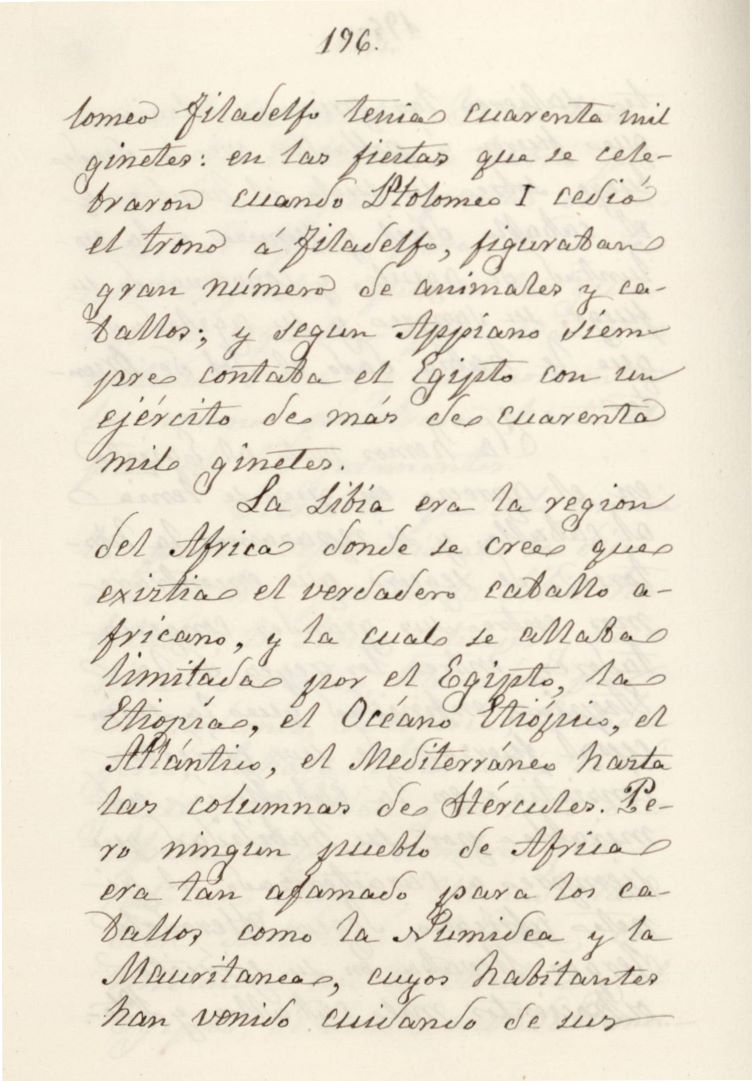 196.
lomeo Filadelfo tenia cuarenta mil
ginetes: en las fiestas que se cele-
braron cuando Ptolomeo I cedió
el trono á Filadelfo, figuraban
gran número de animales y ca-
ballos; y segun Appiano siem
pre contaba el Egipto con un
ejército de más de cuarenta
mil ginetes.
La Libia era la region
del Africa donde se cree que
existia el verdadero caballo a-
fricano, y la cual se allaba
limitada por el Egipto, la
Etiopía, el Océano Etiópico, el
Atlántico, el Mediterráneo hasta
las columnas de Hércules. Pe-
ro ningun pueblo de Africa
era tan afamado para los ca-
ballos como la Numidea y la
Mauritanea, cuyos habitantes
han venido cuidando de sus